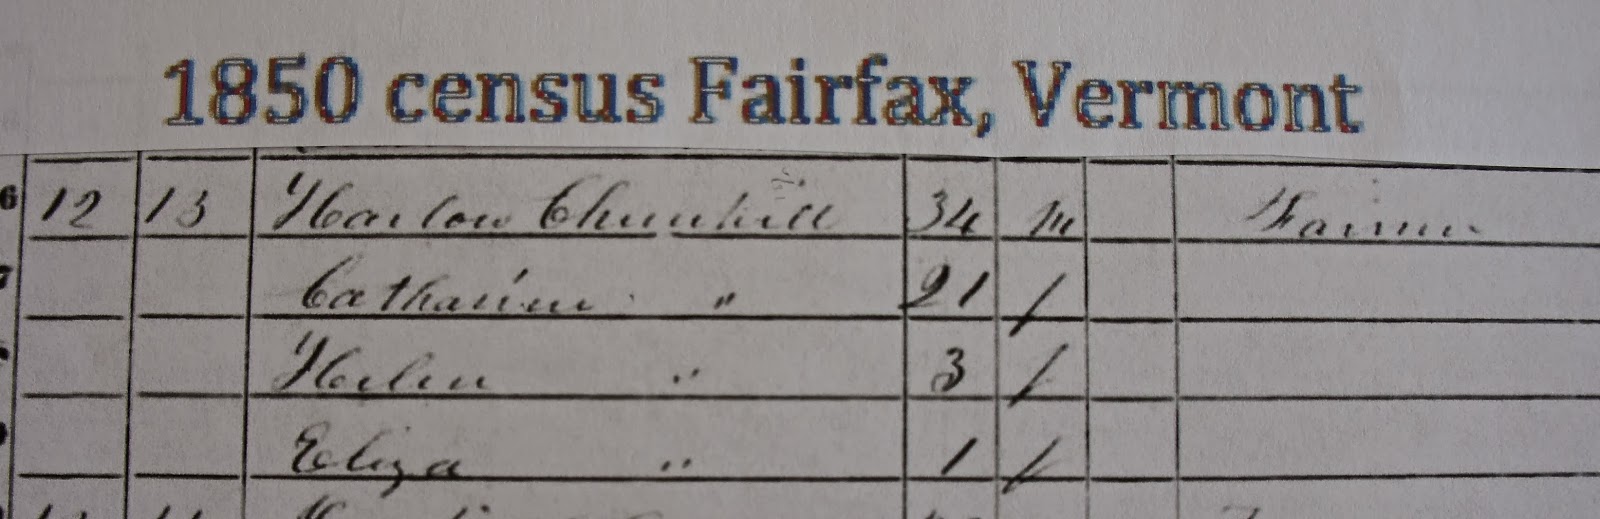 1850 census Fairfax, Vermont
6 12 13 Harlow Churchill 34 m Farmer
7 Catharine " 21 f
Helen " 3 f
Eliza " 1 f